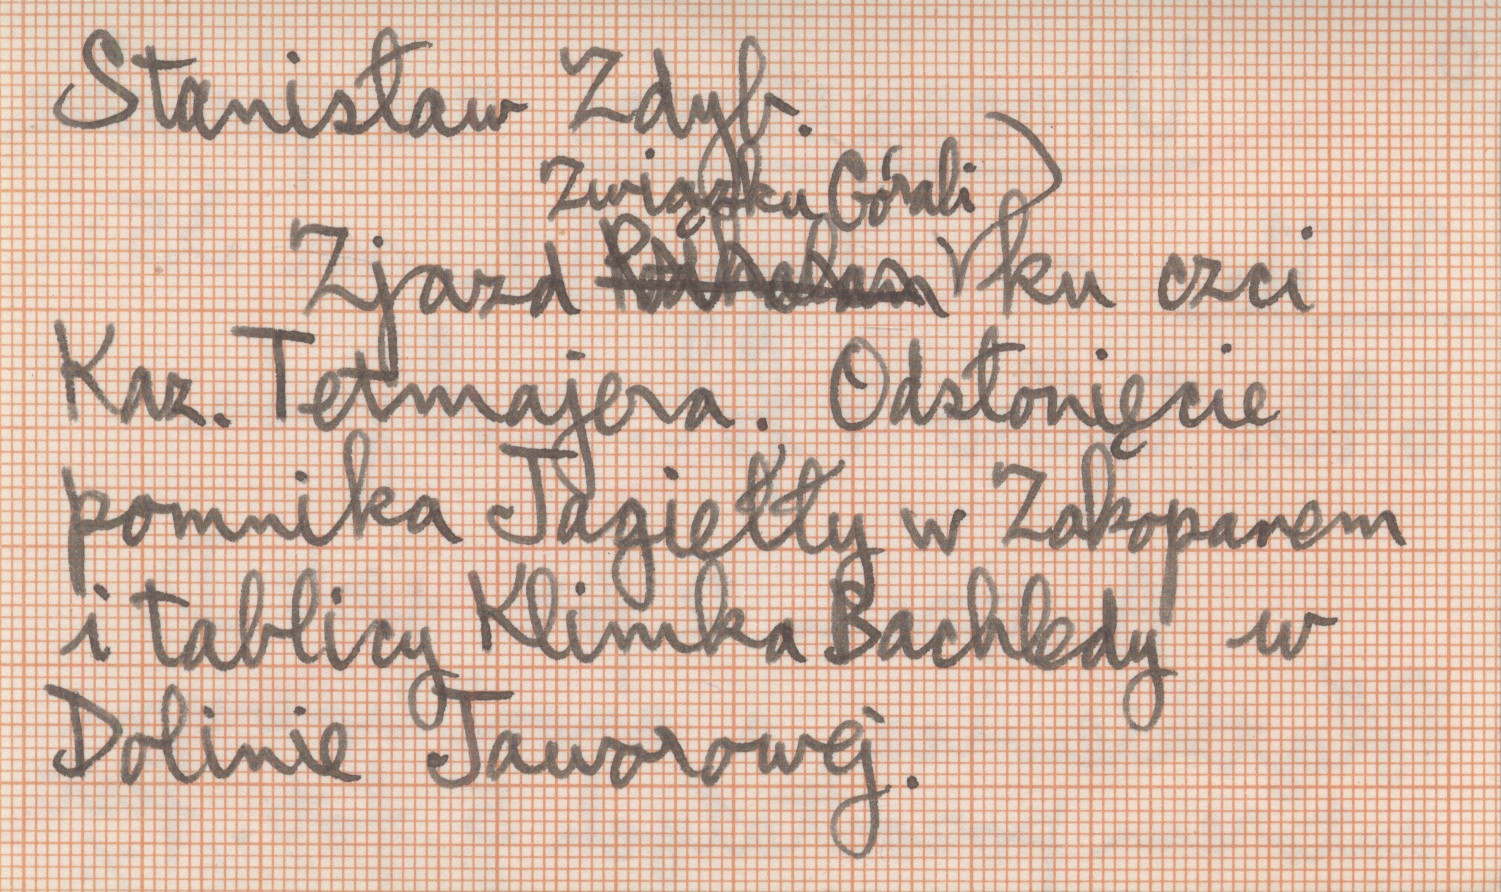 Stanisław Zdyb.
Związku Górali
Zjazd ku czci
Kaz. Tetmajera. Odsłonięcie
pomnika Jagiełły w Zakopanem
i tablicy Klimka Bachledy w
Dolinie Jaworowej.